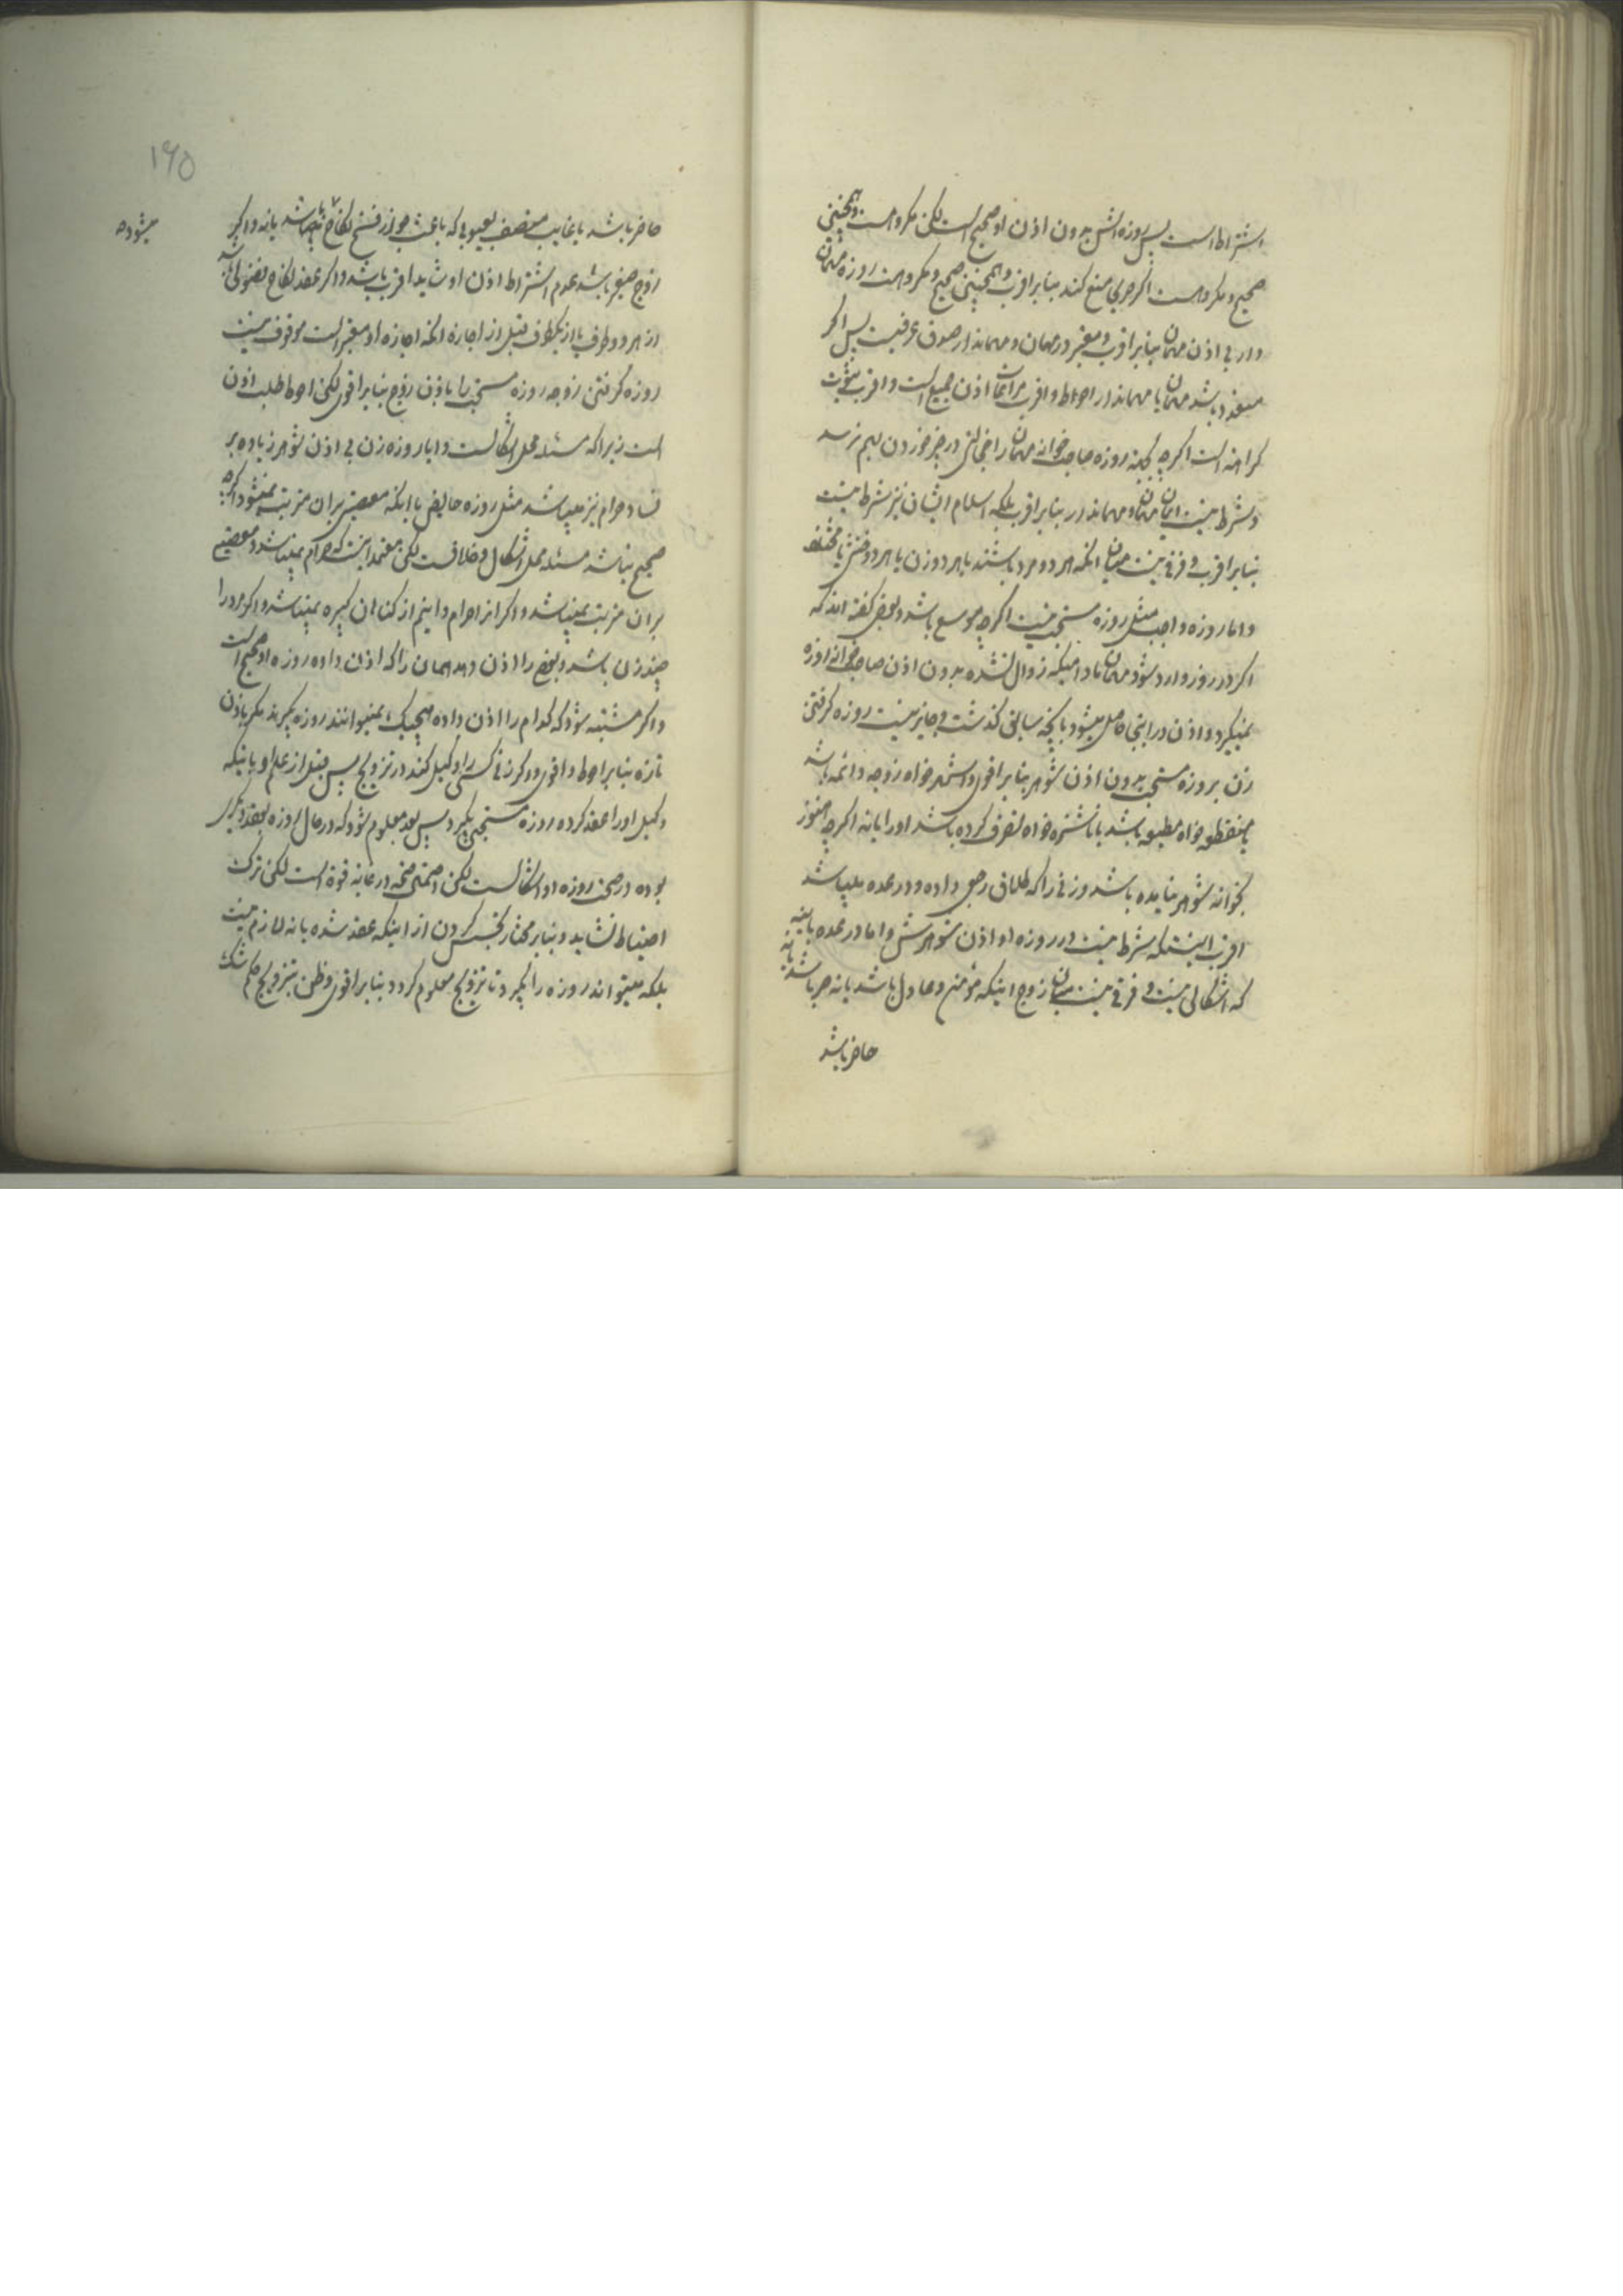 اشتراط است پس روزه اش بدون اذن او صحیح است لکن مکروهست و همچنین
صحیح و مکروهست اگر چه منع کند بنابر اقرب و همچنین صحیح و مکروهست روزه مهمان
دار بی اذن مهمان بنابر اقرب و معتبر در مهمان و مهماندار صدق عرفیست پس اگر
متعدد باشد مهمان یا مهماندار احوط و اقرب مراعات اذن جمیع است و اقرب ثبوت
کراهة است اگر چه روزه صاحب خانه مهمان را در چیز خوردن بهم نرسد
و شرط نیست ایمان مهمان و مهماندار بنابر اقرب بلکه اسلام ایشان نیز شرط نیست
بنابر اقرب و فرقی نیست میان آنکه هر دو مرد باشند یا هر دو زن یا هر دو خنثی یا مختلف
و اما روزه واجب مثل روزه مستحب نیست اگر چه موسع باشد و بعضی گفته اند که
اگر در روز وارد شود مهمان مادامیکه زوال نشده بدون اذن صاحب خانه روزه
نمیگیرد و اذن در اینجا حاصل میشود بآنچه سابق گذشت و جایز نیست روزه گرفتن
زن بروزه مستحبی بدون اذن شوهر بنابر اقوی و اشهر خواه زوجه دائمه باشد
یا منقطعه خواه مطیعه باشد یا ناشزه خواه تصرف کرده باشد او را یا نه اگر چه هنوز
بخوانه شوهر نیامده باشد و زنی را که طلاق رجعی داده و در عده میباشد
اقرب اینستکه شرط نیست در روزه او اذن شوهرش و اما در عده باینه
که اشکالی نیست و فرقی نیست میان زوج اینکه مؤمن و عادل باشد یا نه حر باشد یا نه
حاضر باشد
۱۶۵
حاضر باشد یا غایب متصف بعیوبی که باعث جواز فسخ نکاح باشد یا نه و اگر
زوج صغیر باشد عدم اشتراط اذن او شاید اقرب باشد و اگر عقد نکاح فضولی باشد
از هر دو طرف یا از یکطرف قبل از اجازه آنکه اجازه او معتبر است موقوف نیست
روزه گرفتن زوجه روزه مستحبی را باذن زوج بنابر اقوی لکن احوط طلب اذن
است زیرا که مسئله محل اشکالست و ایا روزه زن بی اذن شوهر زیاده بر
فساد حرام نیز میباشد مثل روزه حایض یا اینکه معصیتی بر آن مترتب نمیشود اگر چه
صحیح نباشد مسئله محل اشکال و خلافست لکن معتمد اینست که حرام نمیباشد و معصیتی
بر آن مترتب نمیباشد و اگر از حرام دانیم از گناهان کبیره نمیباشد و اگر مرد را
چند زن باشد و بعضی را اذن دهد همان را که اذن داده روزه او صحیح است
و اگر مشتبه شود که کدام را اذن داده هیچیک نمیتوانند روزه بگیرند مگر باذن
تازه بنابر احوط و اقوی و اگر زنی کسی را وکیل کند در تزویج پس قبل از علم او باینکه
وکیل او را عقد کرده روزه مستحبی بگیرد پس بعد معلوم شود که در حال روزه بعقد دیگری
بوده در صحت روزه او اشکالست لکن احتمال صحة در غایة قوة است لکن ترک
احتیاط نشاید و بنابر مختار تجسس کردن از اینکه عقد شده یا نه لازم نیست
بلکه میتواند روزه را بگیرد تا تزویج معلوم گردد بنابر اقوی و ظن بتزویج حکم شک